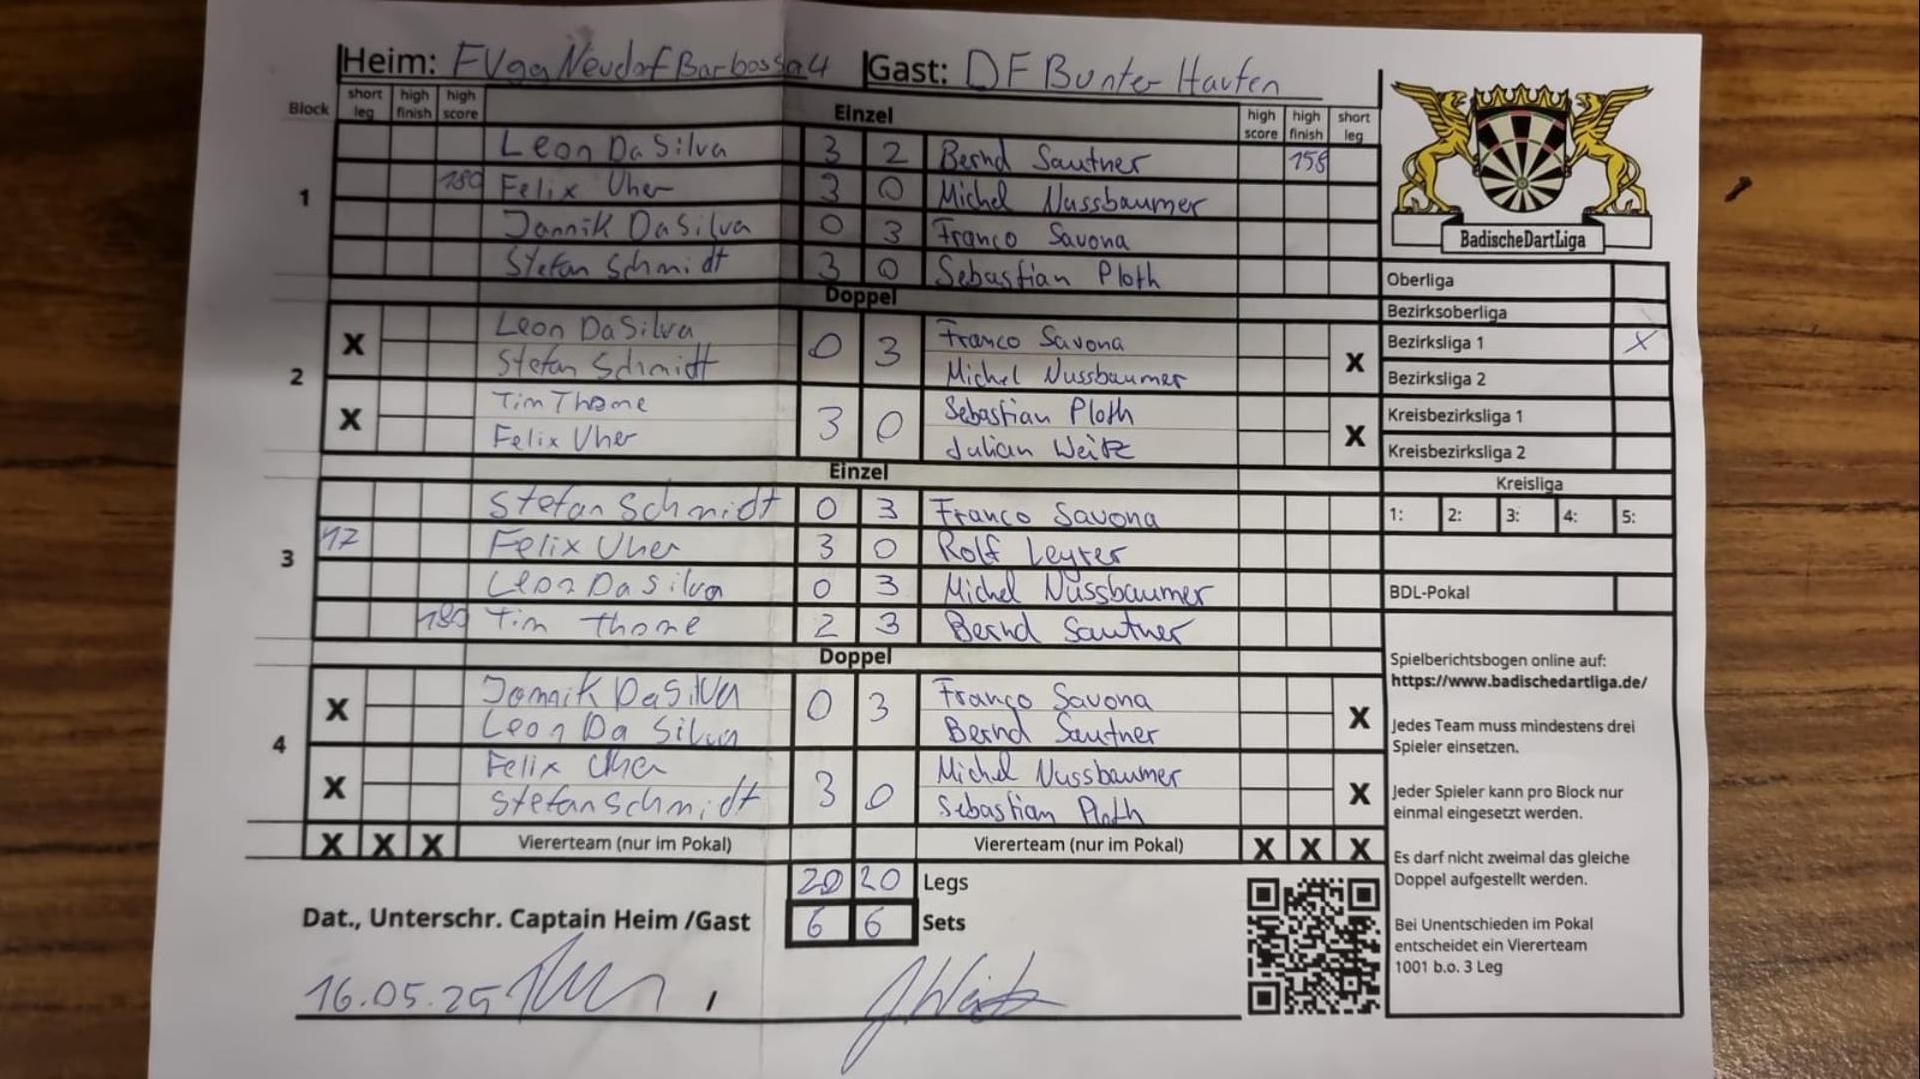 Heim: FVgg Neudorf Barbossa 4 Gast: DF Bunter Haufen
Block short leg high finish high score Einzel high score high finish short leg
1
Leon Da Silva 3 2 Bernd Sautner 158
180 Felix Uher 3 0 Michel Nussbaumer
Jannik Da Silva 0 3 Franco Savona
Stefan Schmidt 3 0 Sebastian Ploth
Doppel
2
X Leon Da Silva 0 3 Franco Savona X
Stefan Schmidt Michel Nussbaumer
X Tim Thome 3 0 Sebastian Ploth X
Felix Uher Julian Weitz
Einzel
3
Stefan Schmidt 0 3 Franco Savona
17 Felix Uher 3 0 Rolf Leyrer
Leon Da Silva 0 3 Michel Nussbaumer
180 Tim Thome 2 3 Bernd Sautner
Doppel
4
X Jannik Da Silva 0 3 Franco Savona X
Leon Da Silva Bernd Sautner
X Felix Uher 3 0 Michel Nussbaumer X
Stefan Schmidt Sebastian Ploth
X X X Viererteam (nur im Pokal) Viererteam (nur im Pokal) X X X
20 20 Legs
6 6 Sets
Dat., Unterschr. Captain Heim /Gast
16.05.25 /
BadischeDartLiga
Oberliga
Bezirksoberliga
Bezirksliga 1 X
Bezirksliga 2
Kreisbezirksliga 1
Kreisbezirksliga 2
Kreisliga
1: 2: 3: 4: 5:
BDL-Pokal
Spielberichtsbogen online auf:
https://www.badischedartliga.de/
Jedes Team muss mindestens drei
Spieler einsetzen.
Jeder Spieler kann pro Block nur
einmal eingesetzt werden.
Es darf nicht zweimal das gleiche
Doppel aufgestellt werden.
Bei Unentschieden im Pokal
entscheidet ein Viererteam
1001 b.o. 3 Leg